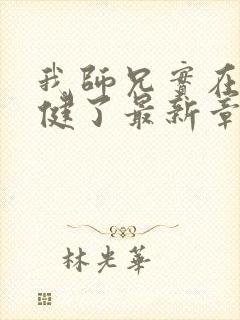 我師兄實在
健了最新章
林光華